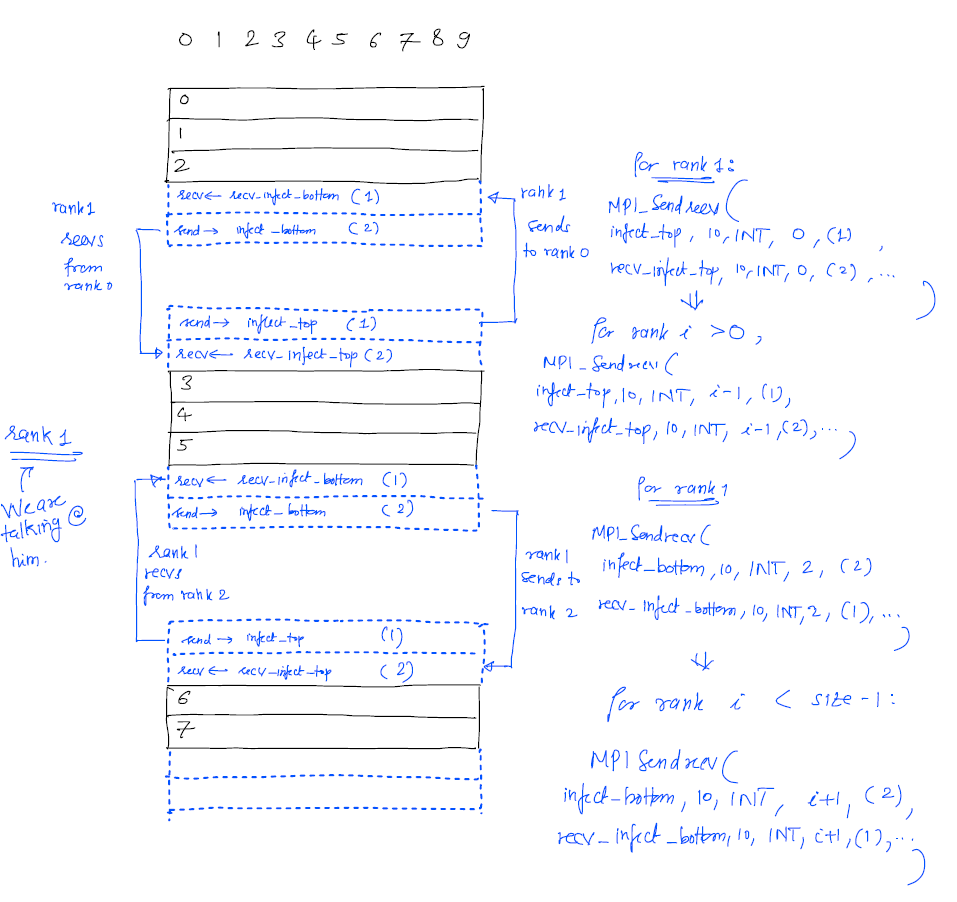 0 1 2 3 4 5 6 7 8 9
0
1
2
recv← recv_infect_bottom (1)
send→ infect_bottom (2)
rank 1
recvs
from
rank 0
rank 1
sends
to rank 0
send→ infect_top (1)
recv← recv_infect_top (2)
3
4
5
rank 1
We are
talking @
him.
recv← recv_infect_bottom (1)
send→ infect_bottom (2)
rank 1
recvs
from rank 2
rank 1
sends to
rank 2
send → infect_top (1)
recv ← recv_infect_top (2)
6
7
for rank 1:
MPI_Sendrecv(
infect_top, 10, INT, 0, (1),
recv_infect_top, 10, INT, 0, (2), ...
)
⇓
for rank i >0,
MPI_Sendrecv(
infect_top, 10, INT, i-1, (1),
recv_infect_top, 10, INT, i-1, (2), ...
)
for rank 1
MPI_Sendrecv(
infect_bottom, 10, INT, 2, (2)
recv_infect_bottom, 10, INT, 2, (1), ...
)
⇓
for rank i < size-1:
MPI Sendrecv(
infect_bottom, 10, INT, i+1, (2),
recv_infect_bottom, 10, INT, i+1, (1), ...
)